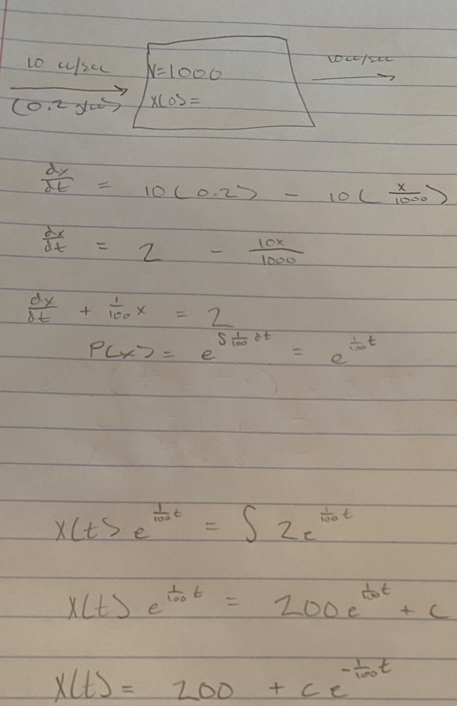 10 cc/sec V=1000 10cc/sec
(0.2 g/cc) x(0)=
dx/dt = 10(0.2) - 10(x/1000)
dx/dt = 2 - 10x/1000
dx/dt + 1/100 x = 2
P(x) = e^{∫ 1/100 dt} = e^{1/100 t}
x(t) e^{1/100 t} = ∫ 2e^{1/100 t}
x(t) e^{1/100 t} = 200e^{1/100 t} + c
x(t) = 200 + ce^{-1/100 t}